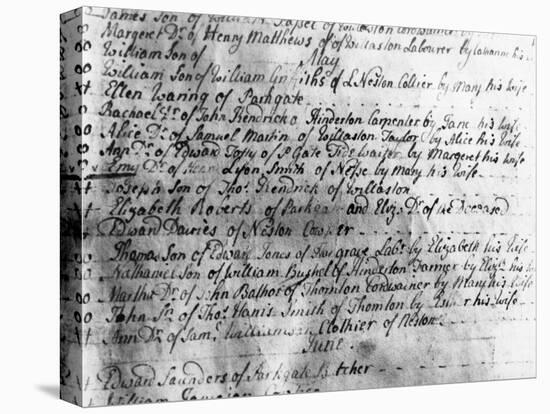 James Son of William of Willaston
Margeret Dr. of Henry Matthews of Willaston Labourer by his
William Son of May
William Son of William Griffiths of L Neston Collier by Mary his Wife
Ellen Waring of Parkgate
Rachael Dr. of John Kendrick of Hinderton Carpenter by Jane his Wife
Alice Dr. of Samuel Martin of Willaston Taylor by Alice his Wife
Ann Dr. of Edward of P. Gate Tide Waiter by Margeret his Wife
Emy Dr. of Henry Lyon Smith of Nesse by Mary his Wife
Joseph Son of Thos. Kendrick of Willaston
Elizabeth Roberts of Parkgate and Eliz. Dr. of the Deceased
Edward Davies of Neston Cowper
Thomas Son of Edward Jones of Hargrave Labr. by Elizabeth his Wife
Nathaniel Son of William Bushel of Hinderton Farmer by Eliz. his
Martha Dr. of John of Thornton Cordwainer by Mary his Wife
John Sn. of Thos. Smith of Thornton by Esther his Wife
Ann Dr. of Saml. Williamson Clothier of Neston
June
Edward Saunders of Parkgate Butcher
William